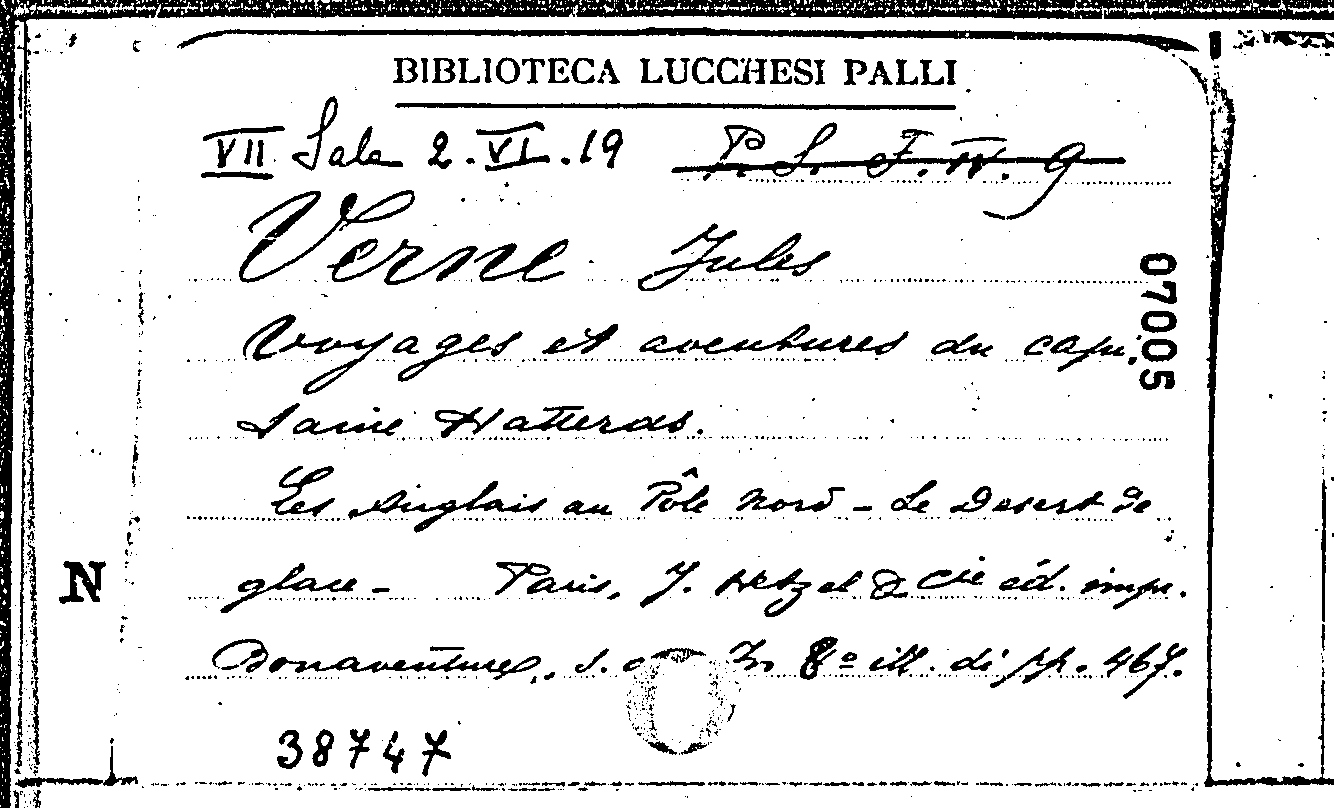 BIBLIOTECA LUCCHESI PALLI
VII Sala 2.VI.19 P. S. F. IV. 9
Verne Jules
07005
Voyages et aventures du capi-
taine Hatteras.
Les Anglais au Pôle Nord – Le Desert de
N
glace – Paris, J. Hetzel & Cie éd. impr.
Bonaventure, s. a. In 8º ill. di pp. 467.
38747